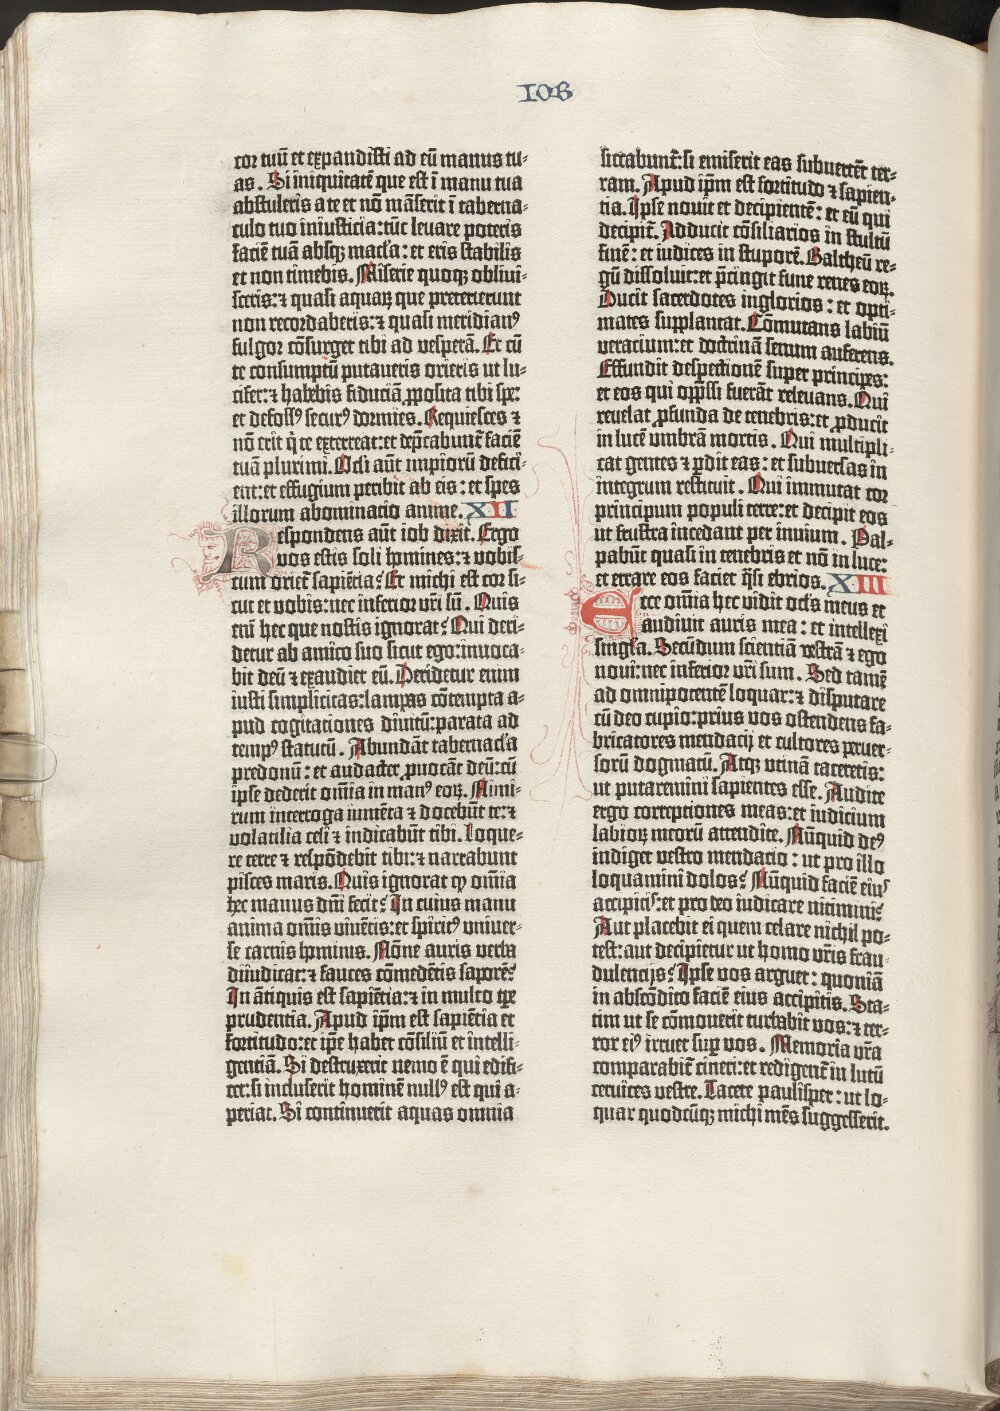 IOB
cor tuū et expandisti ad eū manus tu-
as. Si iniquitatē que est ī manu tua
abstuleris a te et nō māserit ī taberna-
culo tuo iniusticia: tūc levare poteris
faciē tuā absqꝫ macl'a: et eris stabilis
et non timebis. Miserie quoqꝫ oblivi-
sceris: ⁊ quasi aquaꝝ que preterierunt
non recordaberis: ⁊ quasi meridianꝰ
fulgor cōsurget tibi ad vesperā. Et cū
te consumptū putaveris orieris ut lu-
cifer: ⁊ habebis fiduciā ꝓposita tibi spe:
et defossꝰ securꝰ dormies. Requiesces ⁊
nō erit q̇ te exterreat: et dep̄cabunt̄ faciē
tuā plurimi. Ocl'i aūt impiorū defici-
ent: et effugium peribit ab eis: et spes
illorum abominacio anime. XII
Respondens aūt iob dixit. Ergo
vos estis soli homines: ⁊ vobis-
cum oriet̄ sapiētia? Et michi est cor si-
cut et vobis: nec inferior vr̄i sū. Quis
eni hec que nostis ignorat? Qui deri-
detur ab amico suo sicut ego: invoca-
bit deū ⁊ exaudiet eū. Deridetur enim
iusti simplicitas: lampas cōtempta a-
pud cogitationes divitū: parata ad
tempꝰ statutū. Abundāt tabernacl'a
predonū: et audacter ꝓvocāt deū: cū
ipse dederit omīa in manꝰ eoꝝ. Nimi-
rum interroga iumēta ⁊ docebūt te: ⁊
volatilia celi ⁊ indicabūt tibi. Loque-
re terre ⁊ respōdebit tibi: ⁊ narrabunt
pisces maris. Quis ignorat ꝙ omīa
hec manus dn̄i fecit? In cuius manu
anima omīs vivētis: et spiritꝰ univer-
se carnis hominus. Nōne auris verba
diiudicat: ⁊ fauces cōmedētis saporē?
In ātiquis est sapiētia: ⁊ in multo tp̄e
prudentia. Apud ip̄m est sapiētia et
fortitudo: et ip̄e habet cōsiliū et intelli-
gentiā. Si destruxerit nemo ē qui edifi-
cet: si incluserit hominē nullꝰ est qui a-
periat. Si continuerit aquas omnia
siccabunt̄: si emiserit eas subvertēt ter-
ram. Apud ip̄m est fortitudo ⁊ sapien-
tia. Ipse novit et decipientē: et eū qui
decipit̄. Adducit cōsiliarios in stultū
finē: et iudices in stuporē. Baltheū re-
gū dissolvit: et p̄cingit fune renes eoꝝ.
Ducit sacerdotes inglorios: et opti-
mates supplantat. Cōmutans labiū
veracium: et doctrinā senum auferens.
Effundit despectionē super principes:
et eos qui opp̄ssi fuerāt relevans. Qui
revelat ꝓfunda de tenebris: et ꝓducit
in lucē umbrā mortis. Qui multipli-
cat gentes ⁊ ꝑdit eas: et subversas in
integrum restituit. Qui immutat cor
principum populi terre: et decipit eos
ut frustra incedant per invium. Pal-
pabūt quasi in tenebris et nō in luce:
et errare eos faciet q̄si ebrios. XIII
Ecce omīa hec vidit ocl's meus et
audivit auris mea: et intellexi
singl'a. Secūdum scientiā vestrā ⁊ ego
novi: nec inferior vr̄i sum. Sed tamē
ad omnipotentē loquar: ⁊ disputare
cū deo cupio: prius vos ostendens fa-
bricatores mendacij et cultores perver-
sorū dogmatū. Atqꝫ utinā taceretis:
ut putaremini sapientes esse. Audite
ergo correptiones meas: et iudicium
labioꝝ meorū attendite. Nūquid deꝰ
indiget vestro mendacio: ut pro illo
loquamini dolos? Nūquid faciē eiuˢ
accipitiˢ: et pro deo iudicare nitiminī?
Aut placebit ei quem celare nichil po-
test: aut decipietur ut homo vr̄is frau-
dulencijs? Ipse vos arguet: quoniā
in abscōdito faciē eius accipitis. Sta-
tim ut se cōmoverit turbabit vos: ⁊ ter-
ror eiꝰ irruet suꝑ vos. Memoria vr̄a
comparabit̄ cineri: et redigent̄ in lutū
cervices vestre. Tacete paulisper: ut lo-
quar quodcūqꝫ michi mēs suggesserit.